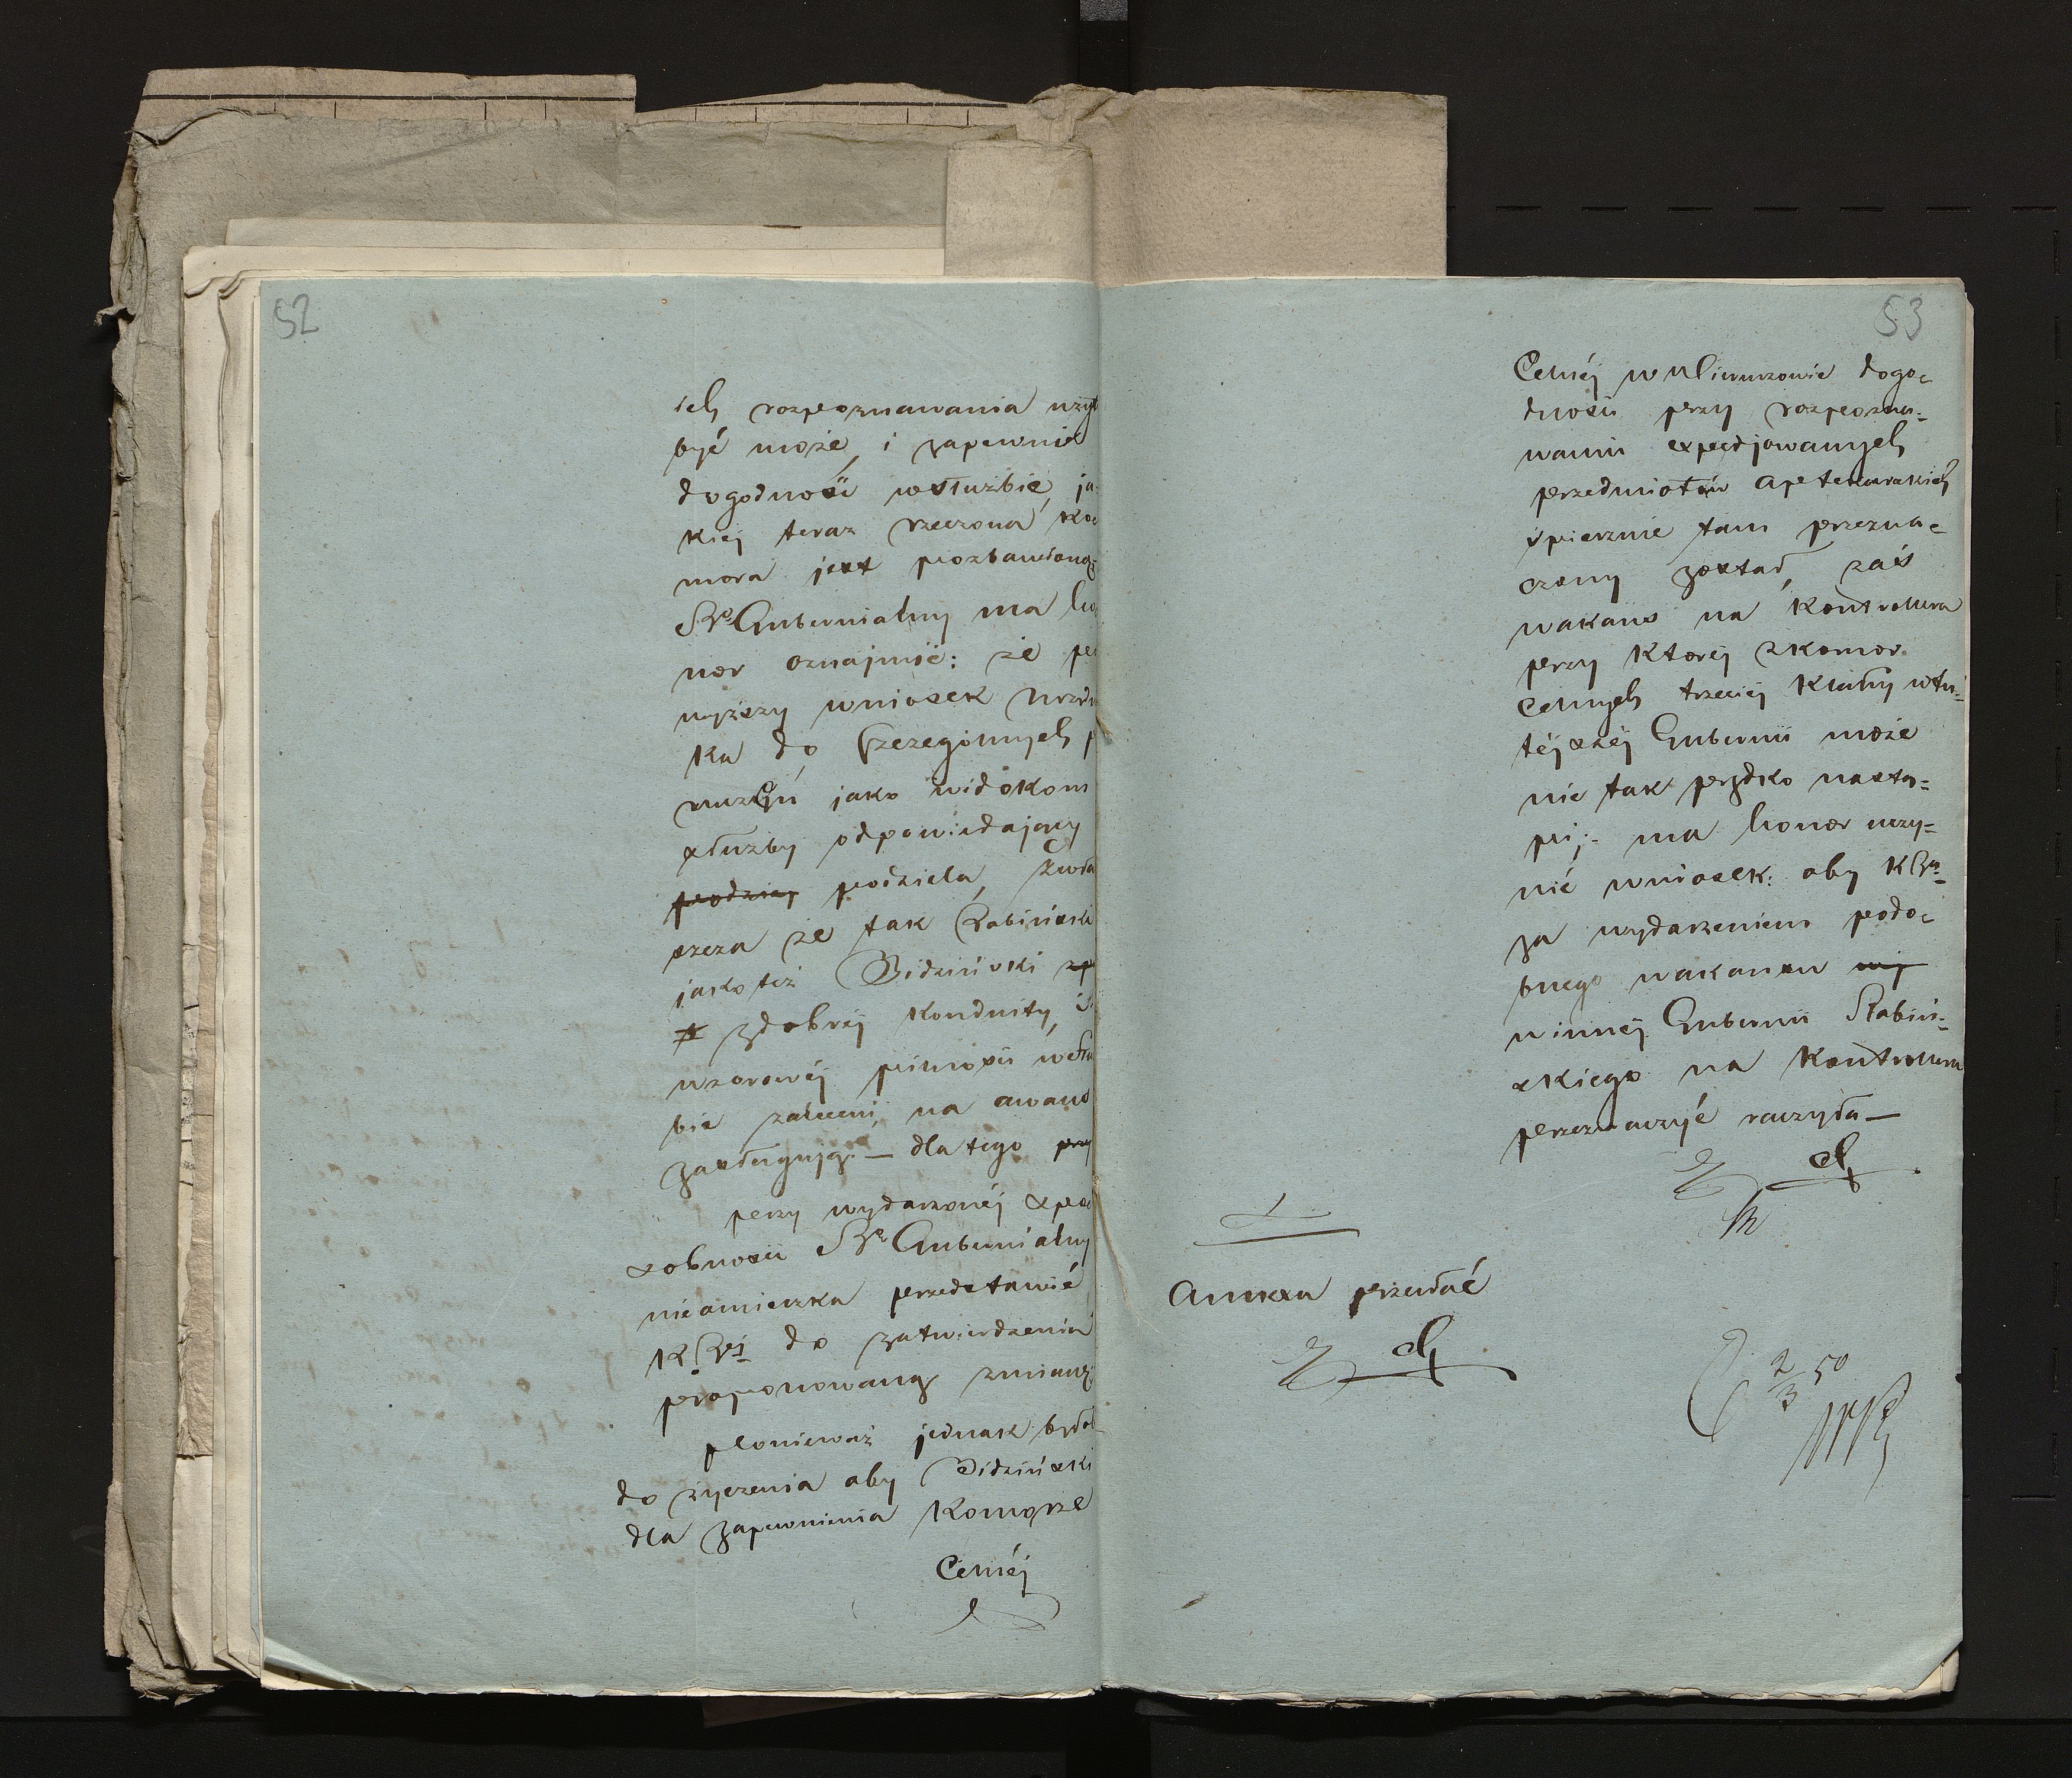 52
ich rozpoznawania użyt
być może, i zapewnić
dogodność wsłużbie, ja-
kiej teraz rzeczona Ko-
mora jest pozbawioną;
Rząd Gubernialny ma ho-
nor oznajmić: że po
wyższy wniosek Urzęd
ka do szczegolnych p
ruczeń jako widokom
służby odpowiadający
podziela, Zwła
szcza że tak Rabiński
jako też Bidziński
zdobrej konduity, i
wzorowéj pilności wsłu
bie zaleceni, na awans
zasługują. — dla tego
przy wydarzonéj spo
sobności Rząd Gubernialny
nieomieszka przedstawić
KRPiS do zatwierdzenia
proponowaną zmianę;
ponieważ jednak byłob
do życzenia aby Bidziński
dla zapewnienia Komorze
Celnéj
53
Celnéj w Mierunowie dogo-
dności przy rozpozna-
waniu expedjowanych
przedmiotów Aptekarskich
śpiesznie tam przezna-
czony został, zaś
wakans na Kontrollera
przy ktorej z komor
Celnych trzeciej klassy wtu-
téjszéj Gubernii może
nie tak prędko nastą-
pi; - ma honor uczy-
nić wniosek: aby KR
za wydarzeniem podo-
bnego wakansu
winnéj Gubernii Rabiń-
skiego na Kontrollera
przeznaczyć raczyła —
Annexa przesłać
2/3 50